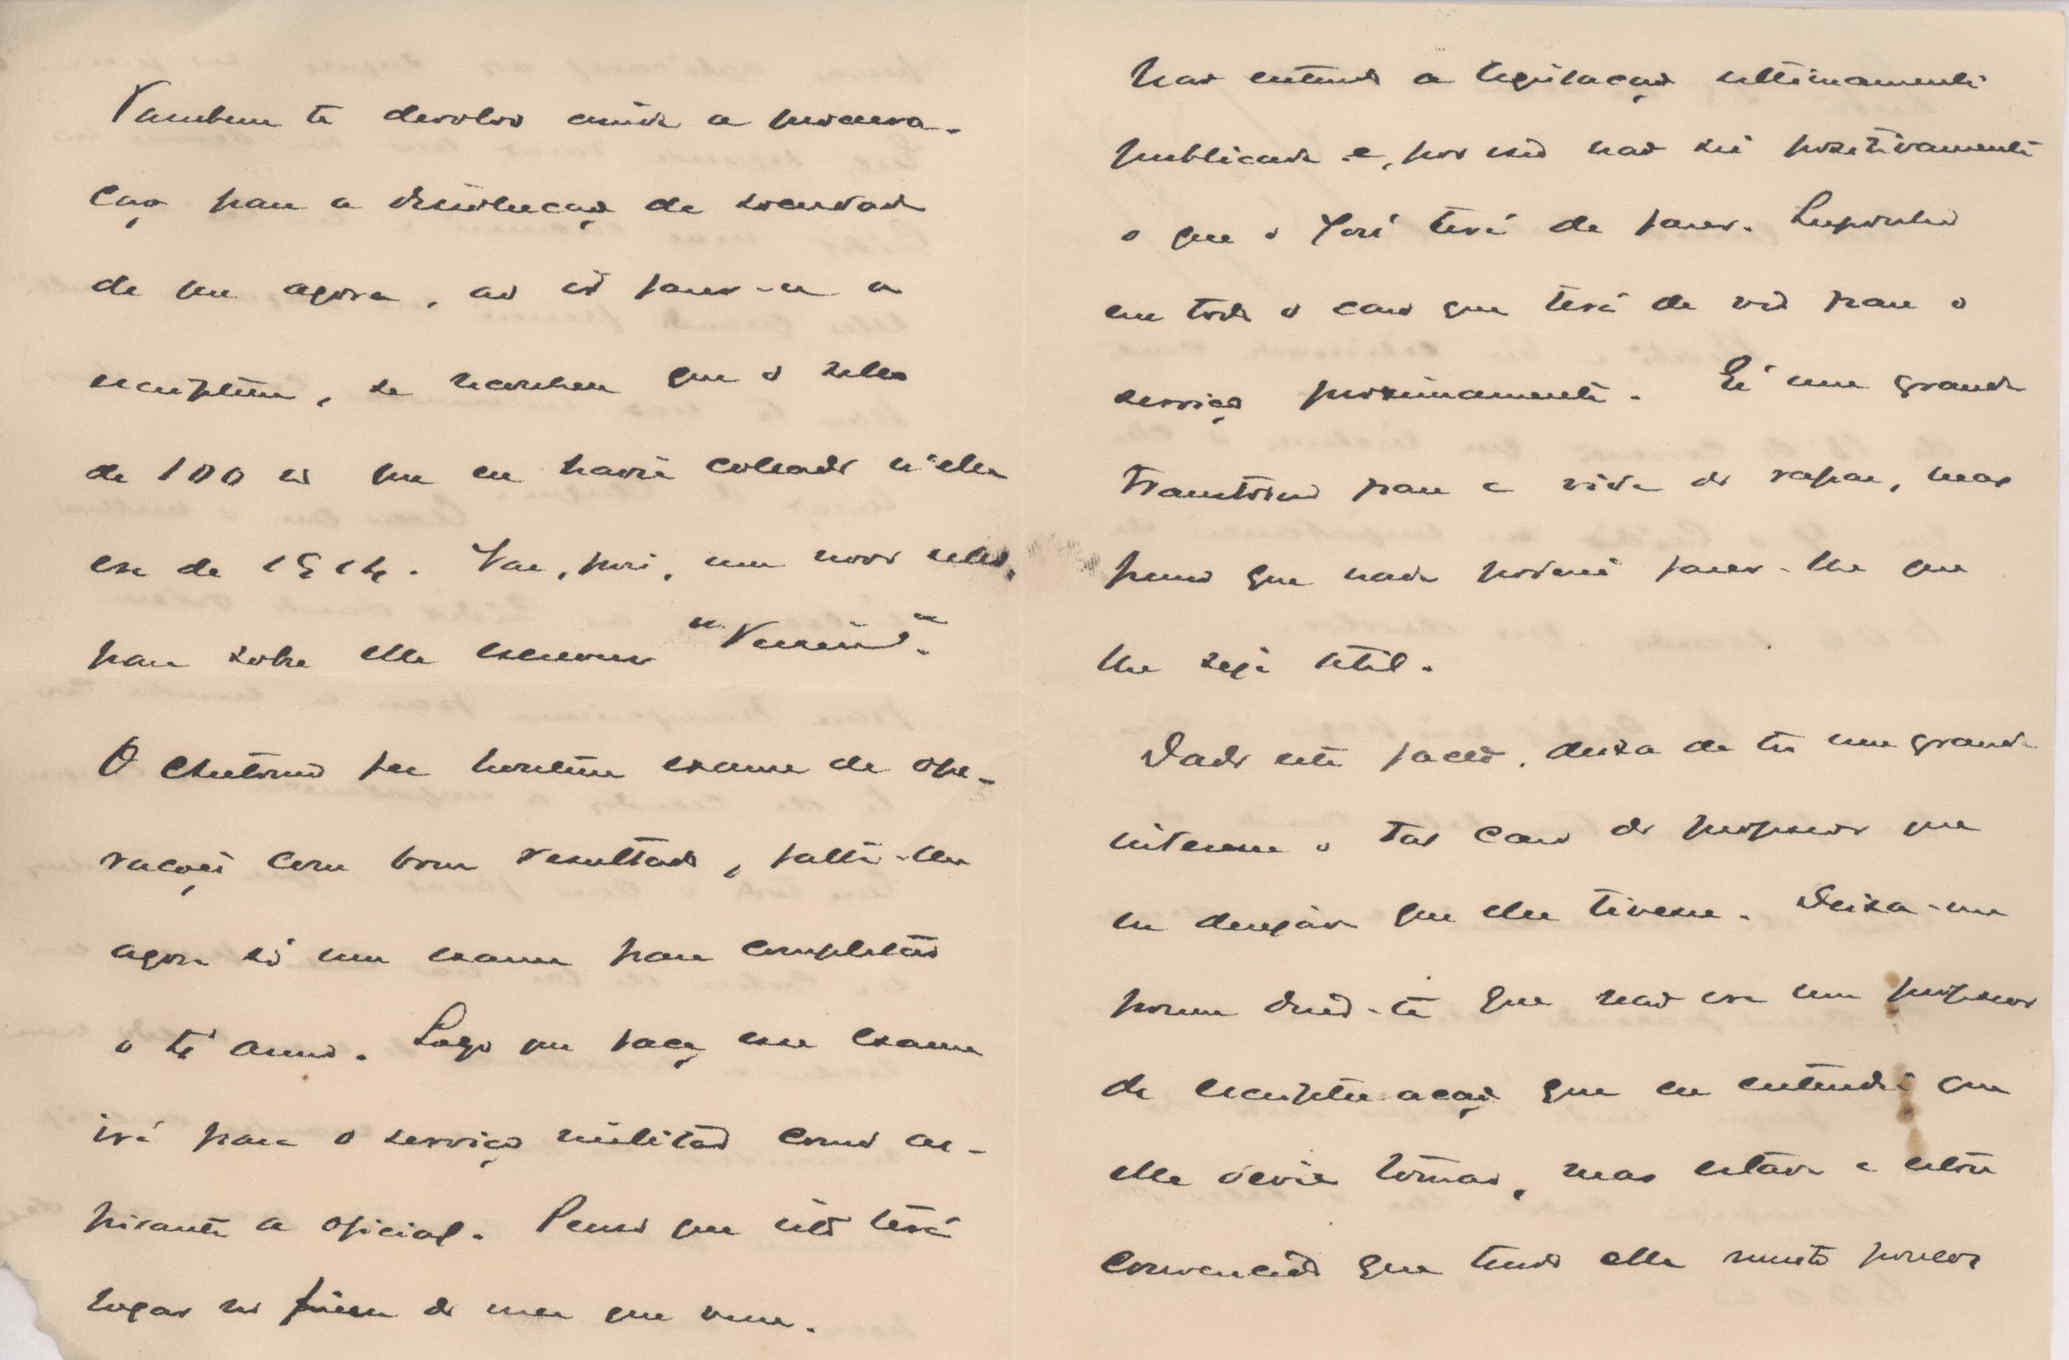 Tambem te devolvo ainda a procura-
ção para a dissolucção da sociedade
de que agora, ao ir fazer-se a
escriptura, se reconheceu que o sello
de 100 rs que eu havia colado n'ella
era de 1914. Vae, pois, um novo sello,
para sobre elle escrever
O Antonio fez hontem exame de ope-
rações com bom resultado, falta-lhe
agora só um exame para completar
o 4º anno. Logo que faça esse exame
irá para o serviço militar como as-
pirante a oficial. Penso que isto terá
lugar no fim do mez que vem.
Não entendo a legislação ultimamente
publicada e, por isso não sei positivamente
o que o José terá de fazer. Supponho
em todo o caso que terá de vir para o
serviço proximamente. É um grande
transtorno para a vida do rapaz, mas
penso que nada poderei fazer-lhe que
lhe seja util.
Dado este facto, deixa de ter um grande
interesse o tal caso do professor que
eu desejava que elle tivesse. Deixa-me
porem dizer-te que não era um professor
de escripturação que eu entendia que
elle devia tomar, mas estava e estou
convencido que tendo elle muito poucos